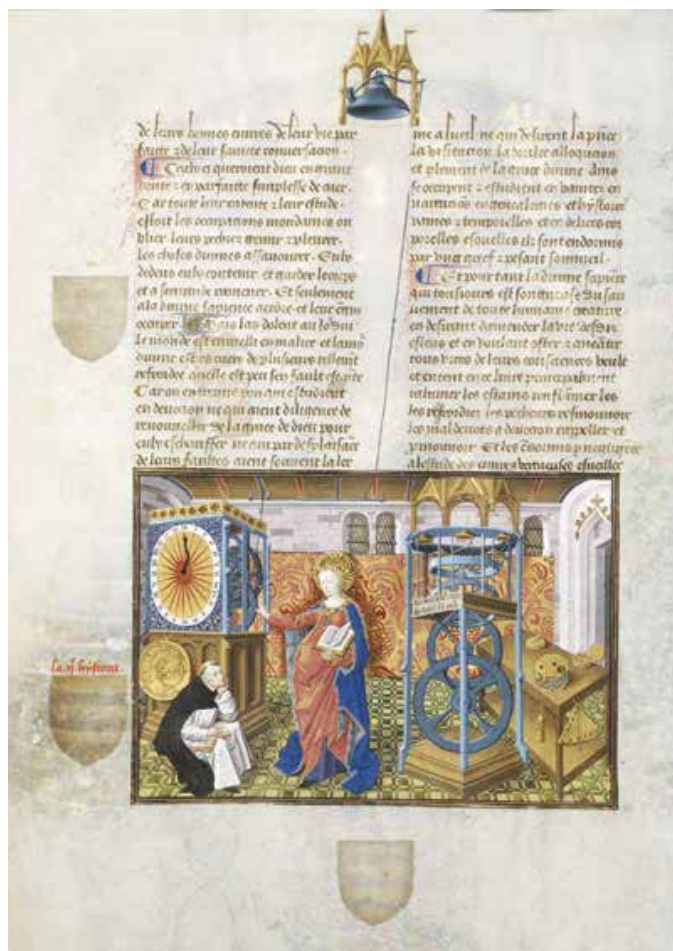 de leurs bonnes euvres de leur vie par
faicte & de leur saincte conversacion.
Ceulx ci queroient dieu en
bonte & en parfaicte simplesse de cuer.
Car toute leur entente & leur estude
estoit les occupacions mondaines ou
blier leurs pechez gemir & plourer.
les choses divines assavourer. Eulx
dedens eulx contenir. et garder le corps
et a servitude ramener. Et seulement
a la divine sapience et leur
occuper. Mais las dolent au
le monde est envielli en malice et
divine est en cuer de plusieurs
refroidee quelle est peu sen fault
Car on en treuve pou qui estudient
en devocion ne qui aient diligence de
renouveller de la grace de dieu pour
eulx eschauffer ne qui par desplaisance
de leurs faultes aient souvent la ler
me a lueil ne qui desirent la
la visitacion la doulce
et de la grace divine. Ains
se occupent & estudient en vanitez en
et hystoires
vaines & temporelles et en delices cor
porelles esquelles ilz sont endormis
par ung grief & pesant sommeil.
Et pour tant la divine sapience
qui tousiours est songneuse du sau
vement de toute humaine creature
en desirant amender la vie de ses
esleus et en voulant oster & aneantir
tous vices de leurs consciences veult
et entent en ce livre principalment
ralumer les estains enflamer les
les reffroidies les pecheurs resmouvoir
les a devocion rappeller et
promouvoir. Et les
a lestude des euvres vertueuses esveiller